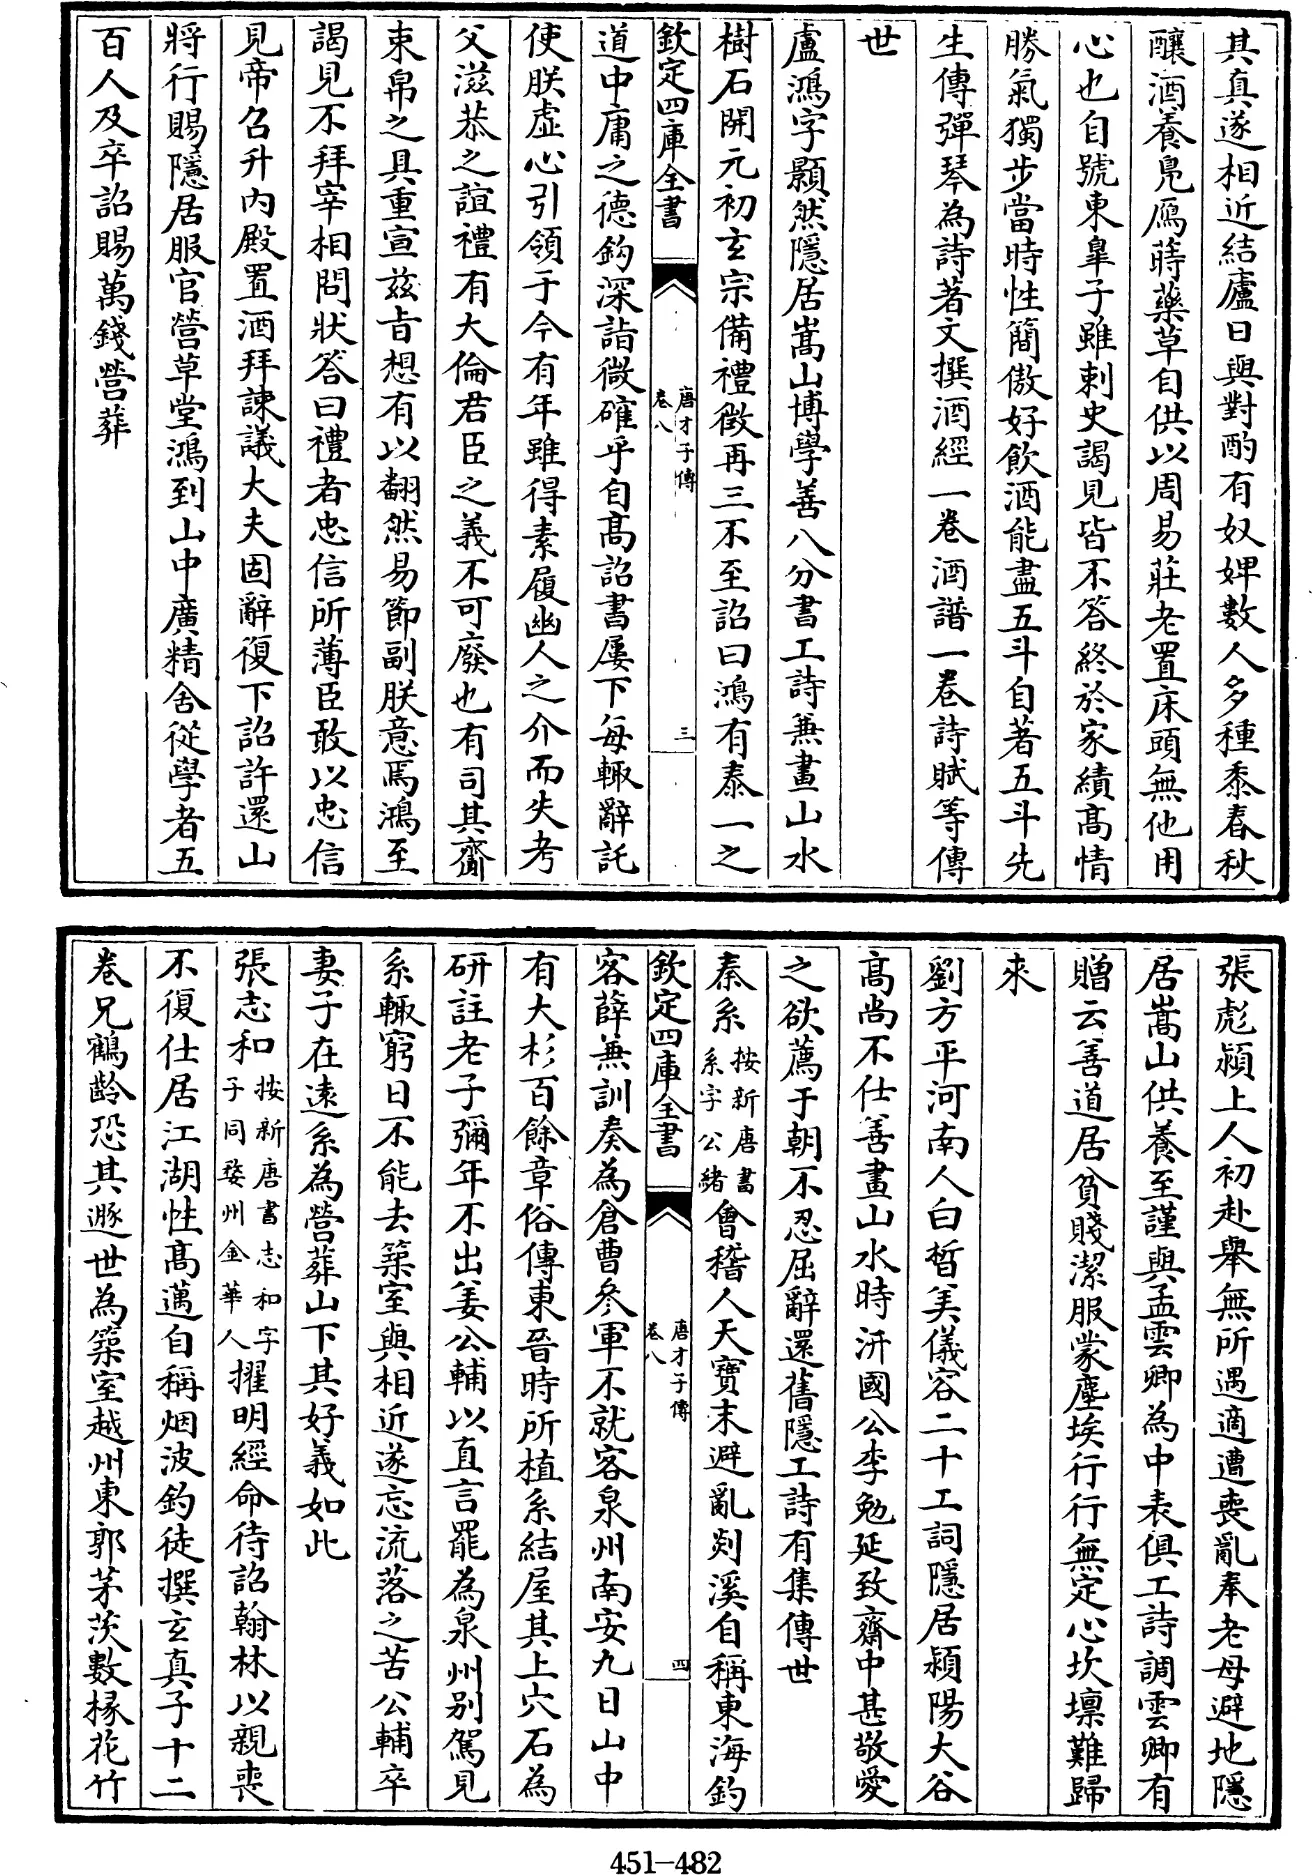 其真遂相近結廬日與對酌有奴婢數人多種黍春秋
釀酒養鳬鴈蒔藥草自供以周易莊老置床頭無他用
心也自號東臯子雖刺史謁見皆不答終於家績髙情
勝氣獨步當時性簡傲好飲酒能盡五斗自著五斗先
生傳彈琴為詩著文撰酒經一卷酒譜一卷詩賦等傳
世
盧鴻字顥然隱居嵩山博學善八分書工詩兼畫山水
樹石開元初玄宗備禮徴再三不至詔曰鴻有泰一之
欽定四庫全書
唐才子傳
卷八
三
道中庸之德鈎深詣微確乎自髙詔書屢下每輙辭託
使朕虛心引領于今有年雖得素履幽人之介而失考
父滋恭之誼禮有大倫君臣之義不可廢也有司其齎
束帛之具重宣兹旨想有以翻然易節副朕意焉鴻至
謁見不拜宰相問狀答曰禮者忠信所薄臣敢以忠信
見帝召升内殿置酒拜諌議大夫固辭復下詔許還山
將行賜隱居服官營草堂鴻到山中廣精舍從學者五
百人及卒詔賜萬錢營葬
張彪潁上人初赴舉無所遇適遭喪亂奉老母避地隱
居嵩山供養至謹與孟雲卿為中表俱工詩調雲卿有
贈云善道居貧賤潔服蒙塵埃行行無定心坎壈難歸
來
劉方平河南人白晳美儀容二十工詞隱居潁陽大谷
髙尚不仕善畫山水時汧國公李勉延致齋中甚敬愛
之欲薦于朝不忍屈辭還舊隱工詩有集傳世
秦系按新唐書系字公緒會稽人天寶末避亂剡溪自稱東海釣
欽定四庫全書
唐才子傳
卷八
四
客薛兼訓奏為倉曹參軍不就客泉州南安九日山中
有大杉百餘章俗傳東晉時所植系結屋其上穴石為
研註老子彌年不出姜公輔以直言罷為泉州别駕見
系輙窮日不能去築室與相近遂忘流落之苦公輔卒
妻子在逺系為營葬山下其好義如此
張志和按新唐書志和字子同婺州金華人擢明經命待詔翰林以親喪
不復仕居江湖性髙邁自稱烟波釣徒撰玄真子十二
卷兄鶴齡恐其遯世為築室越州東郭茅茨數椽花竹
451-482